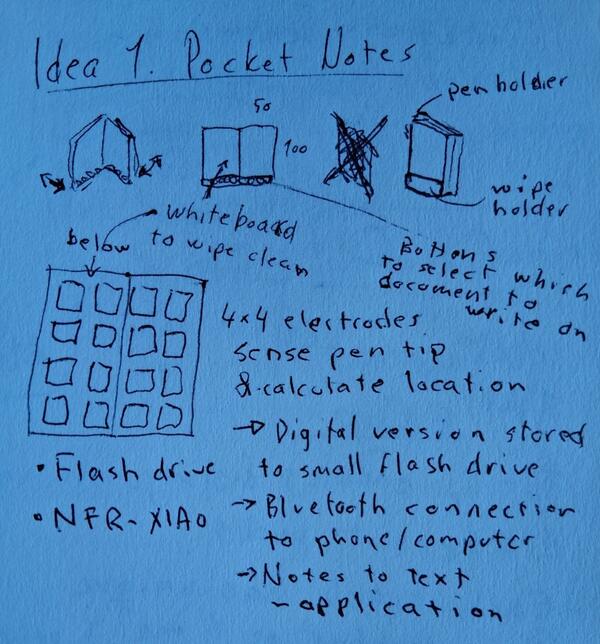 Idea 1. Pocket Notes
pen holder
50
100
wipe
holder
whiteboard
to wipe clean
below
Bottons
to select which
document to
write on
4x4 electrodes
sense pen tip
& calculate location
→ Digital version stored
to small flash drive
→ Bluetooth connection
to phone/computer
→ Notes to text
- application
• Flash drive
• NFR-XIAO